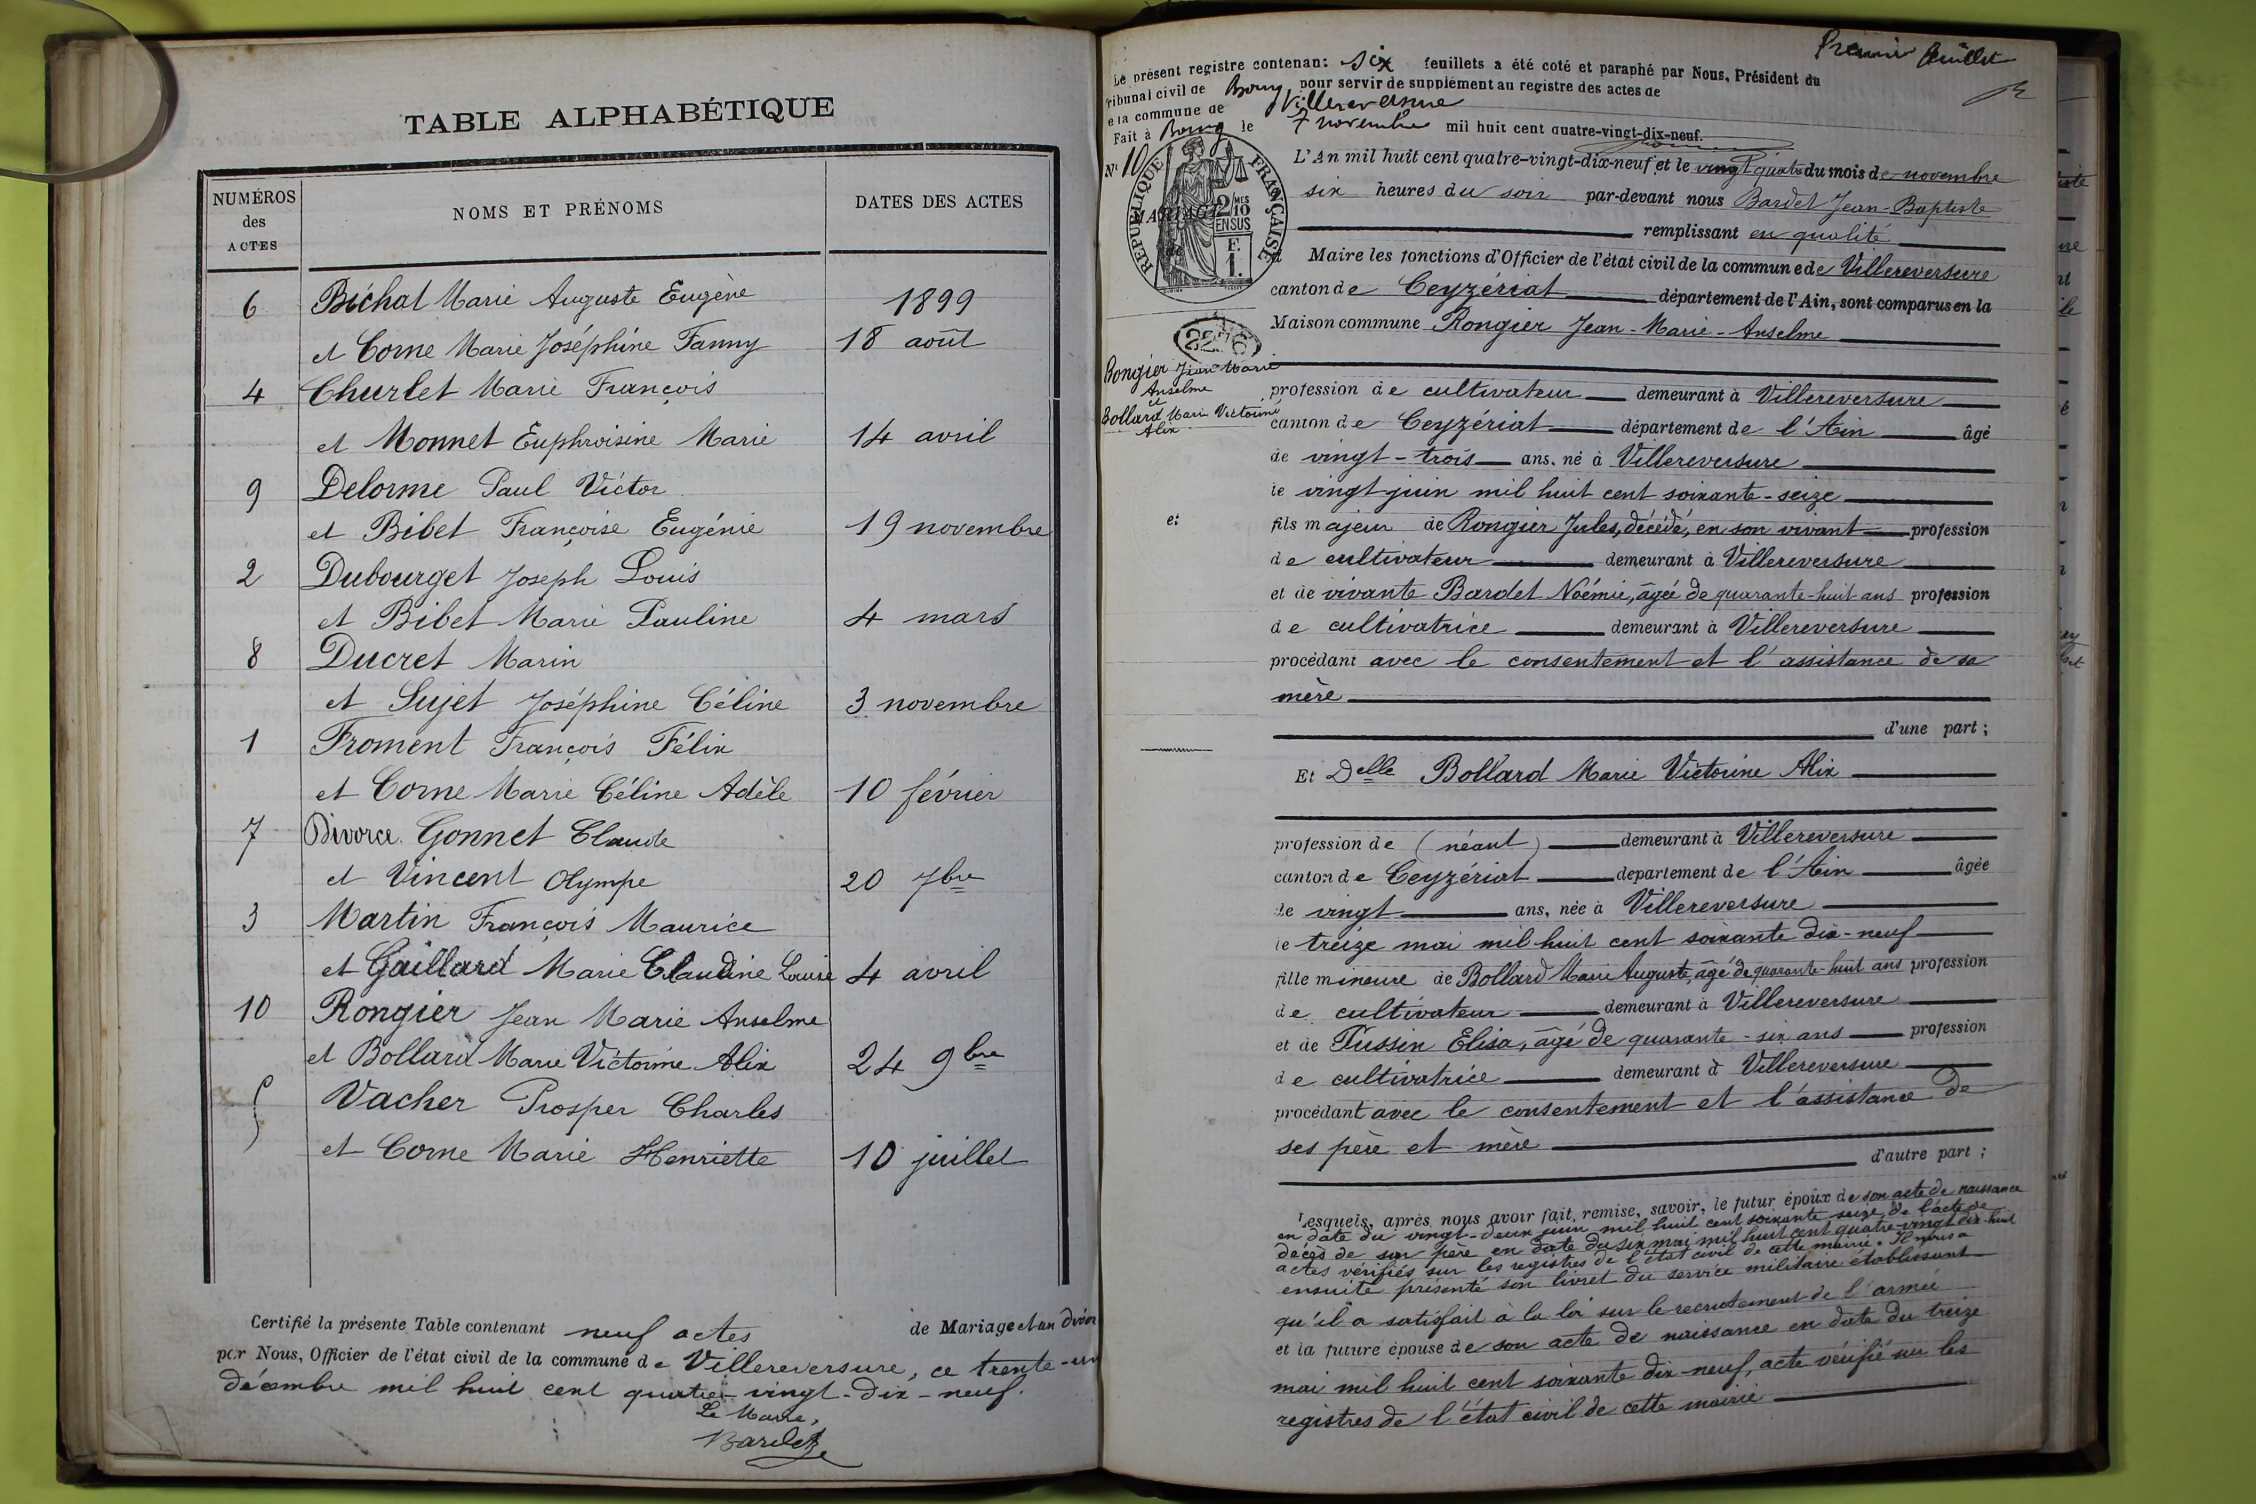 TABLE ALPHABÉTIQUE
NUMÉROS
des
ACTES
NOMS ET PRÉNOMS
DATES DES ACTES
6 Bichat Marie Auguste Eugène 1899
et Corne Marie Joséphine Fanny 18 août
4 Churlet Marie François
et Monnet Euphroisine Marie 14 avril
9 Delorme Paul Victor
et Bibet Françoise Eugénie 19 novembre
2 Dubourget Joseph Louis
et Bibet Marie Pauline 4 mars
8 Ducret Marin
et Sujet Joséphine Céline 3 novembre
1 Froment François Félix
et Corne Marie Céline Adèle 10 février
7 Divorce Gonnet Claude
et Vincent Olympe 20 7bre
3 Martin François Maurice
et Gaillard Marie Claudine Louise 4 avril
10 Rongier Jean Marie Anselme
et Bollard Marie Victorine Alix 24 9bre
5 Vacher Prosper Charles
et Corne Marie Henriette 10 juillet
Certifié la présente Table contenant neuf actes de Mariage et un divor
par Nous, Officier de l'état civil de la commune de Villereversure, ce trente-un
décembre mil huit cent quatre-vingt-dix-neuf.
Le Maire,
Bardet
Premier feuillet
Le présent registre contenant six feuillets a été coté et paraphé par Nous, Président du
Tribunal civil de Bourg, pour servir de supplément au registre des actes de
e la commune de Villereversure
Fait à Bourg le 7 novembre mil huit cent quatre-vingt-dix-neuf.
N° 10
RÉPUBLIQUE FRANÇAISE
2/10 MES
EN SUS
F.
1.
MARIAGE
de
2276
Rongier Jean Marie
Anselme
et
Bollard Marie Victorine
Alix
L'An mil huit cent quatre-vingt-dix-neuf et le vingt quatre du mois de novembre
six heures du soir par-devant nous Bardet Jean-Baptiste
remplissant en qualité
d Maire les fonctions d'Officier de l'état civil de la commune de Villereversure
canton de Ceyzériat département de l'Ain, sont comparus en la
Maison commune Rongier Jean-Marie-Anselme
profession de cultivateur demeurant à Villereversure
canton de Ceyzériat département de l'Ain âgé
de vingt-trois ans, né à Villereversure
le vingt juin mil huit cent soixante-seize
et
fils majeur de Rongier Jules, décédé, en son vivant profession
de cultivateur demeurant à Villereversure
et de vivante Bardet Noémie, âgée de quarante-huit ans profession
de cultivatrice demeurant à Villereversure
procédant avec le consentement et l'assistance de sa
mère
d'une part;
Et Delle Bollard Marie Victorine Alix
profession de (néant) demeurant à Villereversure
canton de Ceyzériat département de l'Ain âgée
de vingt ans, née à Villereversure
le treize mai mil huit cent soixante dix-neuf
fille mineure de Bollard Marie Auguste, âgé de quarante-huit ans profession
de cultivateur demeurant à Villereversure
et de Tissin Elisa, âgé de quarante-six ans profession
de cultivatrice demeurant à Villereversure
procédant avec le consentement et l'assistance de
ses père et mère
d'autre part;
Lesquels, après nous avoir fait remise, savoir, le futur époux de son acte de naissance
en date du vingt-deux juin mil huit cent soixante seize, de l'acte de
décès de son père en date du six mai mil huit cent quatre-vingt dix-huit
actes vérifiés sur les registres de l'état civil de cette mairie. Il nous a
ensuite présenté son livret du service militaire établissant
qu'il a satisfait à la loi sur le recrutement de l'armée
et la future épouse de son acte de naissance en date du treize
mai mil huit cent soixante dix-neuf, acte vérifié sur les
registres de l'état civil de cette mairie